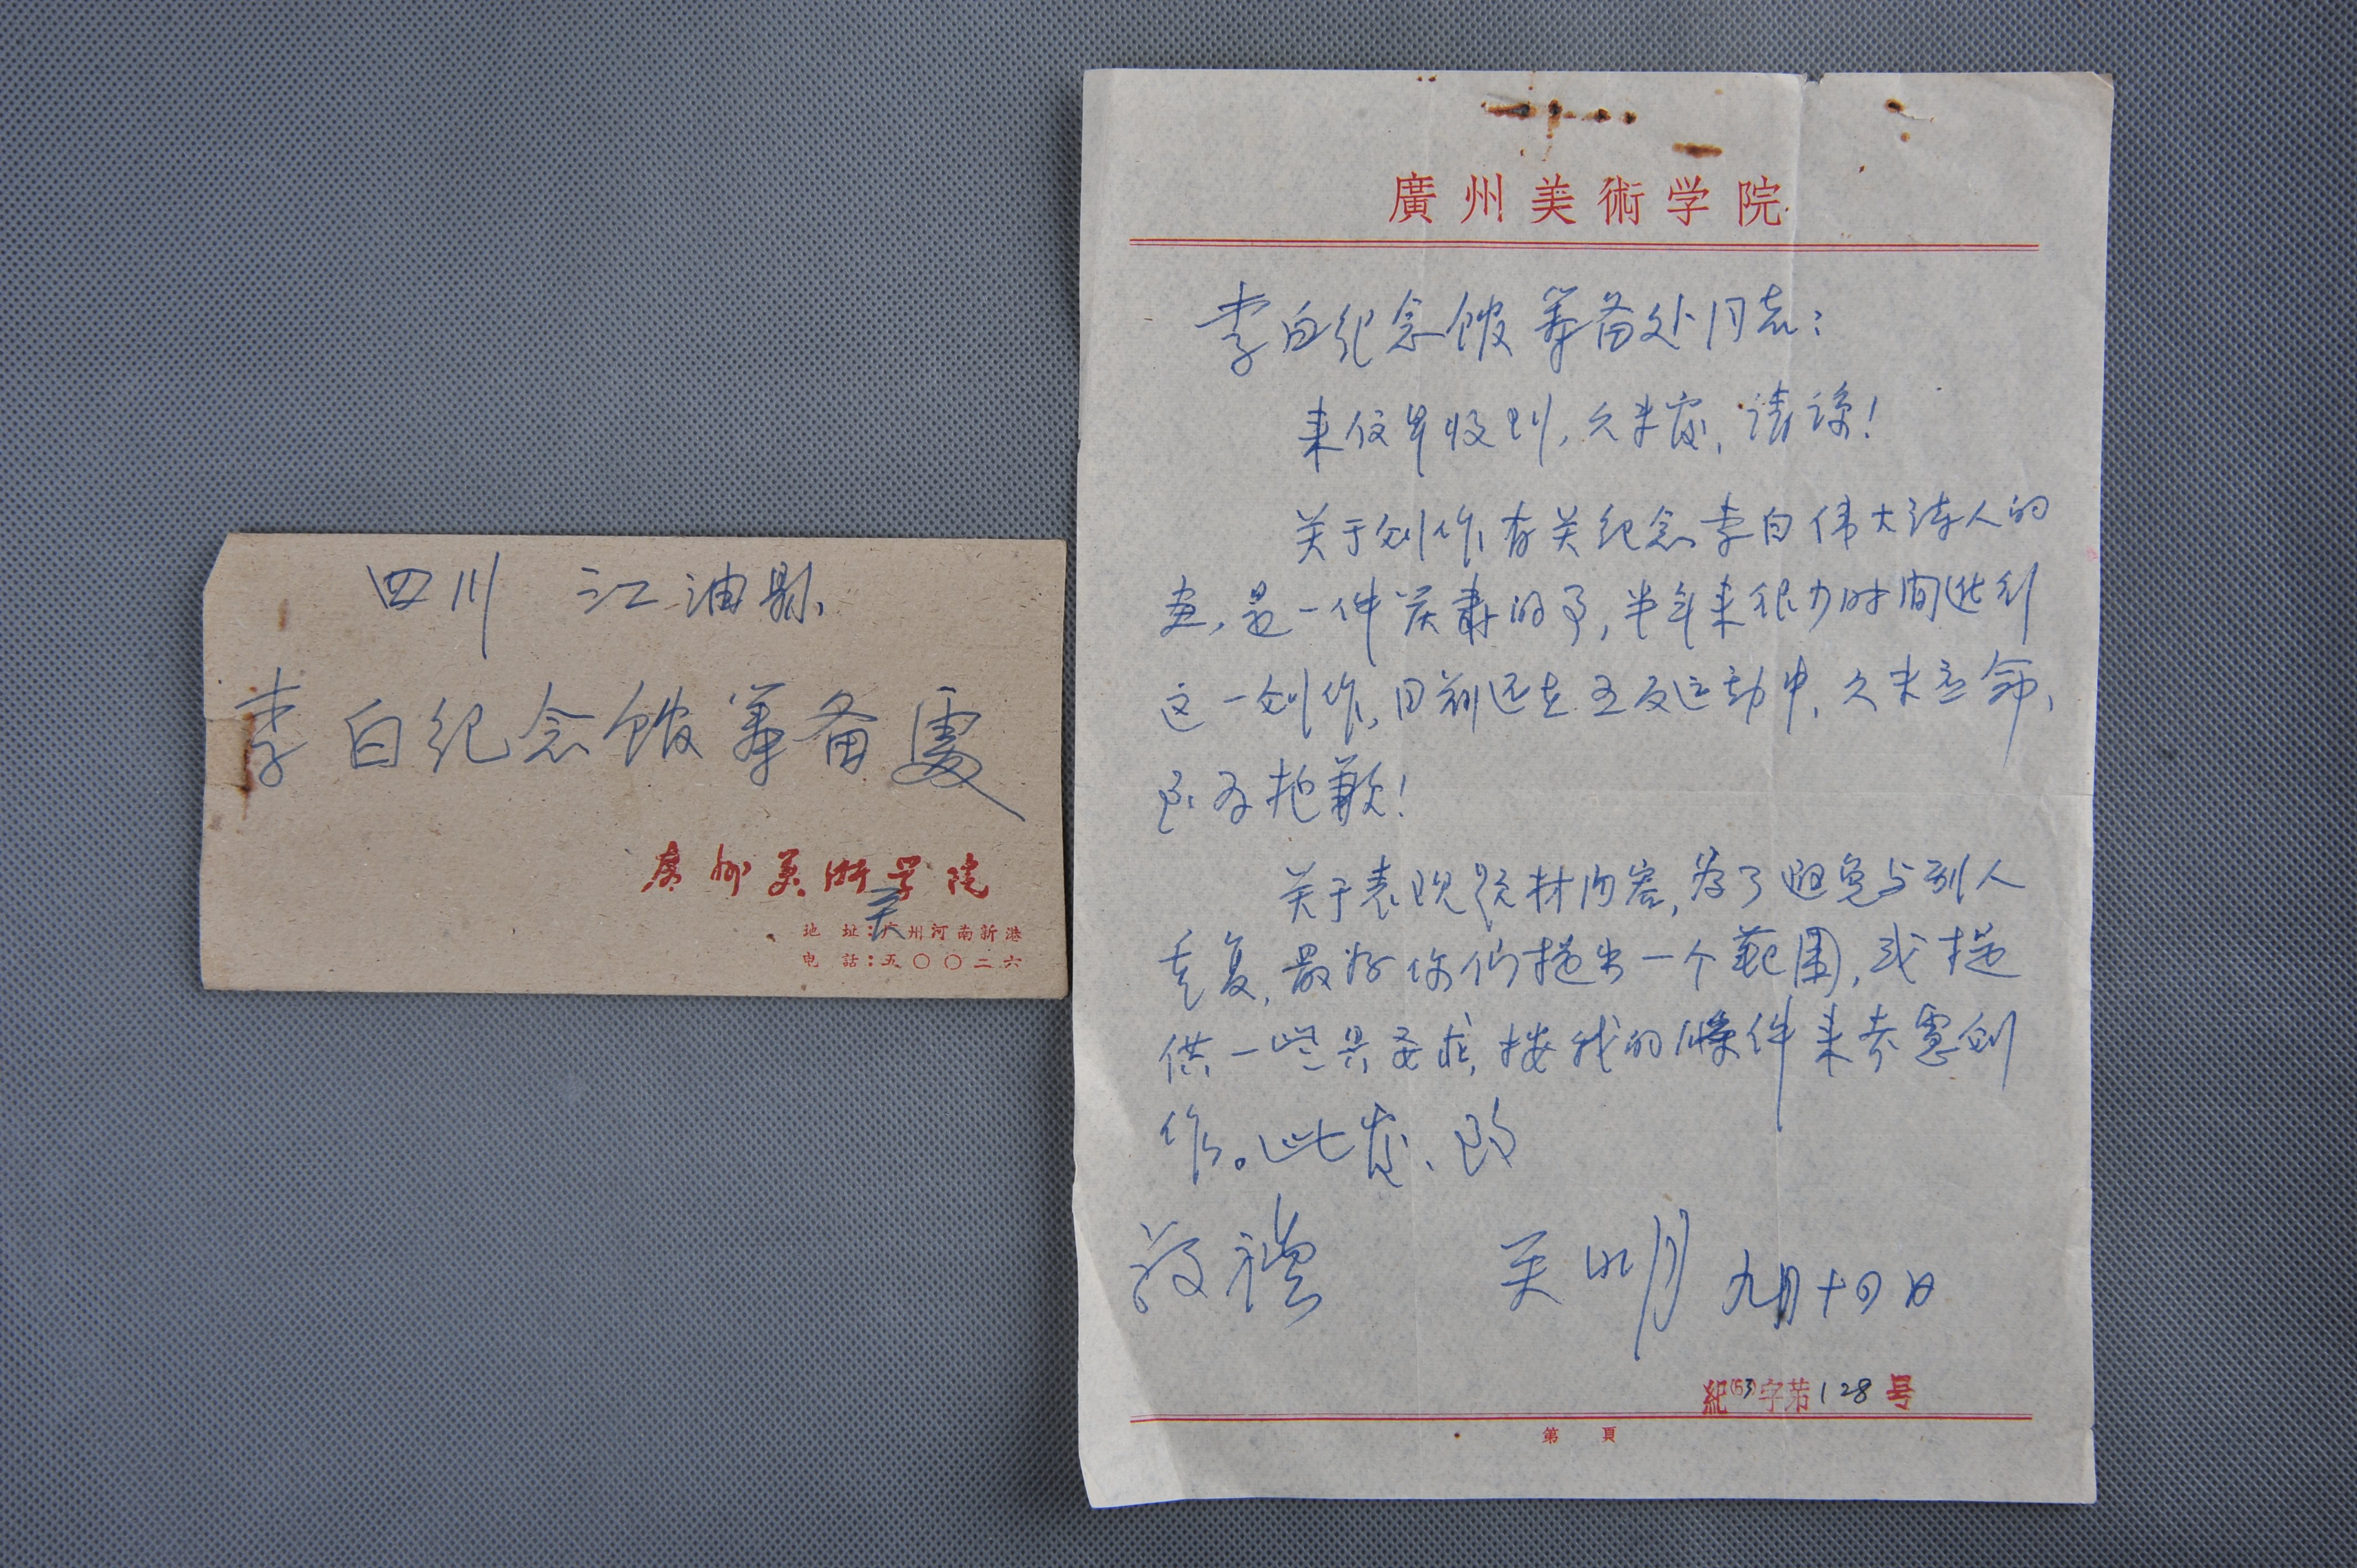 四川 江油县
李白纪念馆筹备處
广州美術学院
关
地 址：广州河南新港
电 話：五〇〇二六
廣州美術学院
李白纪念馆筹备处同志：
来信早收到，久未复，请谅！
关于创作有关纪念李白伟大诗人的
画，是一件严肃的事，半年来很少时间进行
这一创作，目前还在五反运动中，久未应命，
至为抱歉！
关于表现题材内容，为了避免与别人
重复，最好你们提出一个範围，或提
供一些具要求，按我的條件来考虑创
作。此复、即
敬禮 关山月 九月十四日
紀(63)字第128号
第 頁